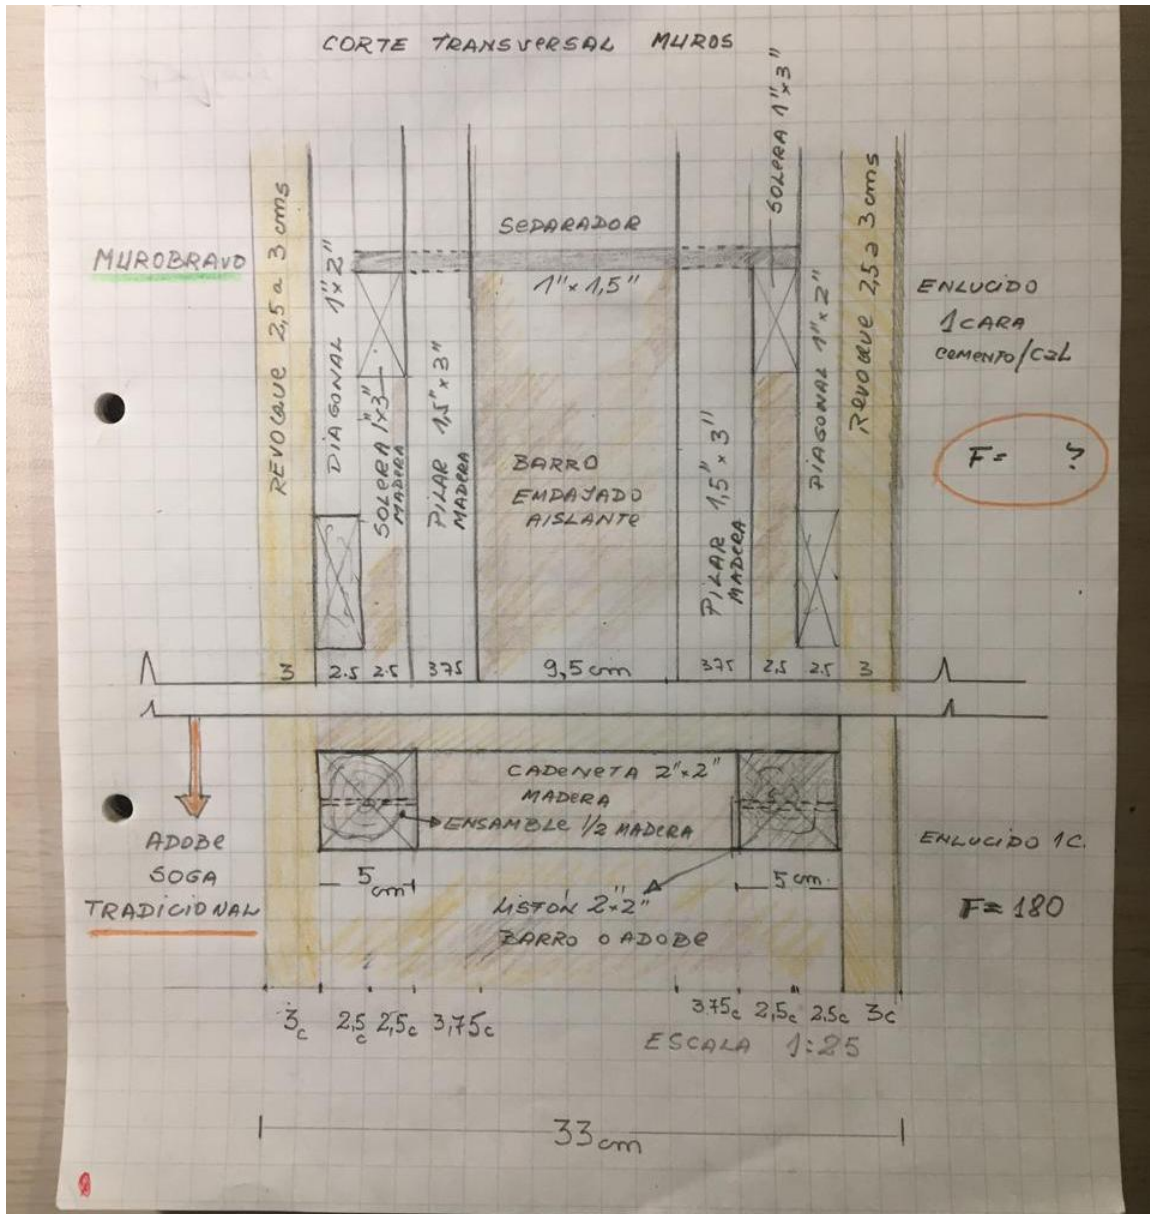 CORTE TRANSVERSAL MUROS
MUROBRAVO
REVOQUE 2,5 a 3 cms
DIAGONAL 1"x 2"
SOLERA 1"x3"
MADERA
PILAR 1,5"x 3"
MADERA
SEPARADOR
1"x 1,5"
BARRO
EMPAJADO
AISLANTE
PILAR 1,5"x 3"
MADERA
SOLERA 1"x3"
DIAGONAL 1"x 2"
REVOQUE 2,5 a 3 cms
ENLUCIDO
1 CARA
CEMENTO/CAL
F= ?
3 2.5 2.5 375 9,5 cm 375 2,5 2,5 3
ADOBE
SOGA
TRADICIONAL
CADENETA 2"x2"
MADERA
ENSAMBLE 1/2 MADERA
5 cm
5 cm.
LISTÓN 2"x2"
BARRO O ADOBE
ENLUCIDO 1C.
F= 180
3c 2,5c 2,5c 3,75c 3.75c 2,5c 2,5c 3c
ESCALA 1:25
33 cm